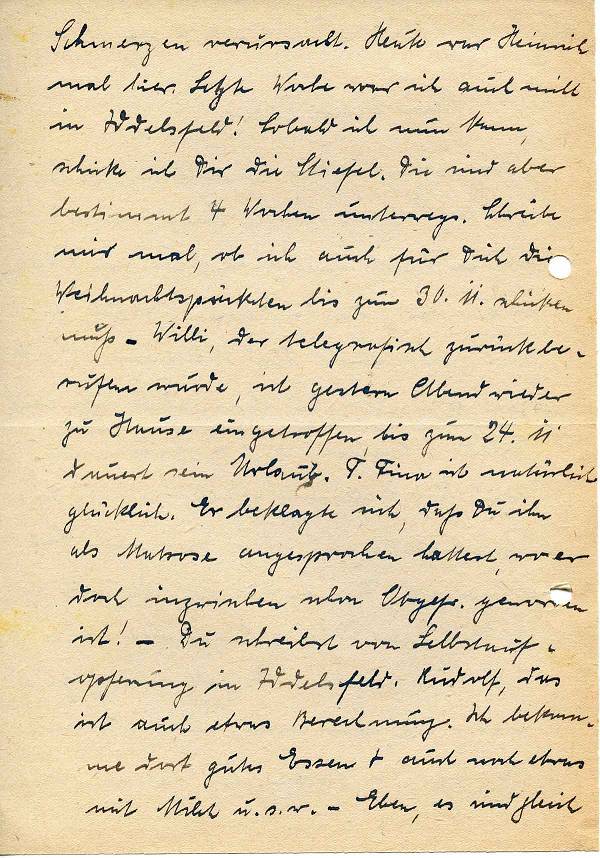 Schmerzen verursacht. Heute war Heinrich
mal hier. Letzte Woche war ich auch mitt
in Iddelsfeld! Sobald ich nun kann,
schicke ich Dir die Stiefel. Die sind aber
bestimmt 4 Wochen unterwegs. Schreibe
mir mal, ob ich auch für Dich die
Weihnachtspäckchen bis zum 30. 11. schicken
muß – Willi, der telegrafisch zurückbe-
rufen wurde, ist gestern Abend wieder
zu Hause eingetroffen, bis zum 24. 11
dauert sein Urlaub. T. Fina ist natürlich
glücklich. Er beklagte sich, daß Du ihn
als Matrose angesprochen hattest, wo er
doch inzwischen schon Obgefr. geworden
ist! – Du schreibst von Selbstauf-
opferung in Iddelsfeld. Rudolf, das
ist auch etwas Berechnung. Ich bekom-
me dort gutes Essen + auch noch etwas
mit Milch u.s.w. – Eben, es sind gleich